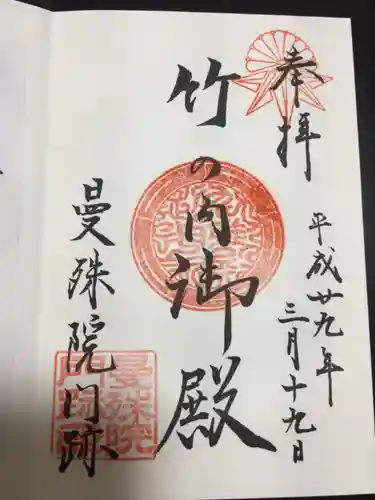 奉拝
平成廿九年
三月十九日
竹の内御殿
曼殊院門跡